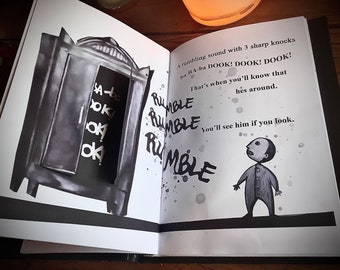 BA-BA
DOOK!
DOOK
DOOK
RUMBLE
RUMBLE
RUMBLE
A rumbling sound with 3 sharp knocks
ba BA-ba DOOK! DOOK! DOOK!
That's when you'll know that
he's around.
You'll see him if you look.